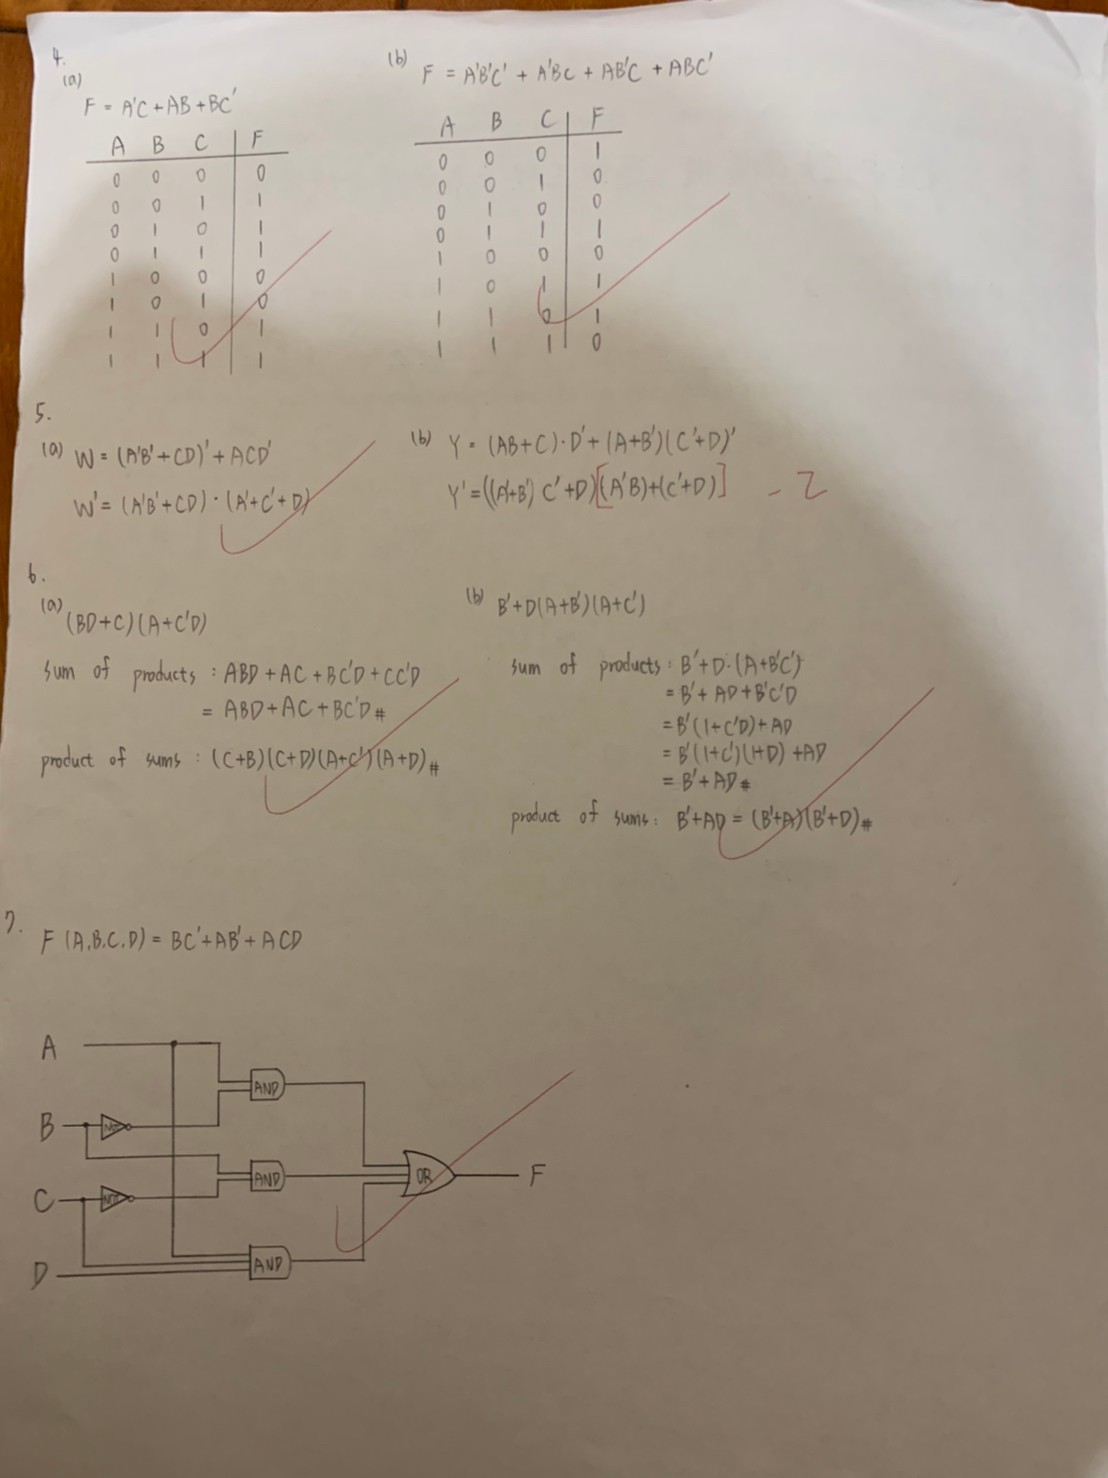 4.
(a)
F = A'C + AB + BC'
A B C F
0 0 0 0
0 0 1 1
0 1 0 1
0 1 1 1
1 0 0 0
1 0 1 0
1 1 0 1
1 1 1 1
(b)
F = A'B'C' + A'BC + AB'C + ABC'
A B C F
0 0 0 1
0 0 1 0
0 1 0 0
0 1 1 1
1 0 0 0
1 0 1 1
1 1 0 1
1 1 1 0
5.
(a) W = (A'B' + CD)' + ACD'
W' = (A'B' + CD) · (A' + C' + D)
(b) Y = (AB+C)·D' + (A+B')(C'+D)'
Y' = ((A'+B') C' + D)[(A'B)+(C'+D)] - 2
6.
(a) (BD+C)(A+C'D)
sum of products : ABD + AC + BC'D + CC'D
= ABD + AC + BC'D #
product of sums : (C+B)(C+D)(A+C')(A+D) #
(b) B'+D(A+B')(A+C')
sum of products : B'+D·(A+B'C')
= B' + AD + B'C'D
= B'(1+C'D) + AD
= B'(1+C')(1+D) + AD
= B' + AD #
product of sums : B'+AD = (B'+A)(B'+D) #
7.
F (A,B,C,D) = BC' + AB' + ACD
A
AND
B NOT
AND OR F
C NOT
D AND